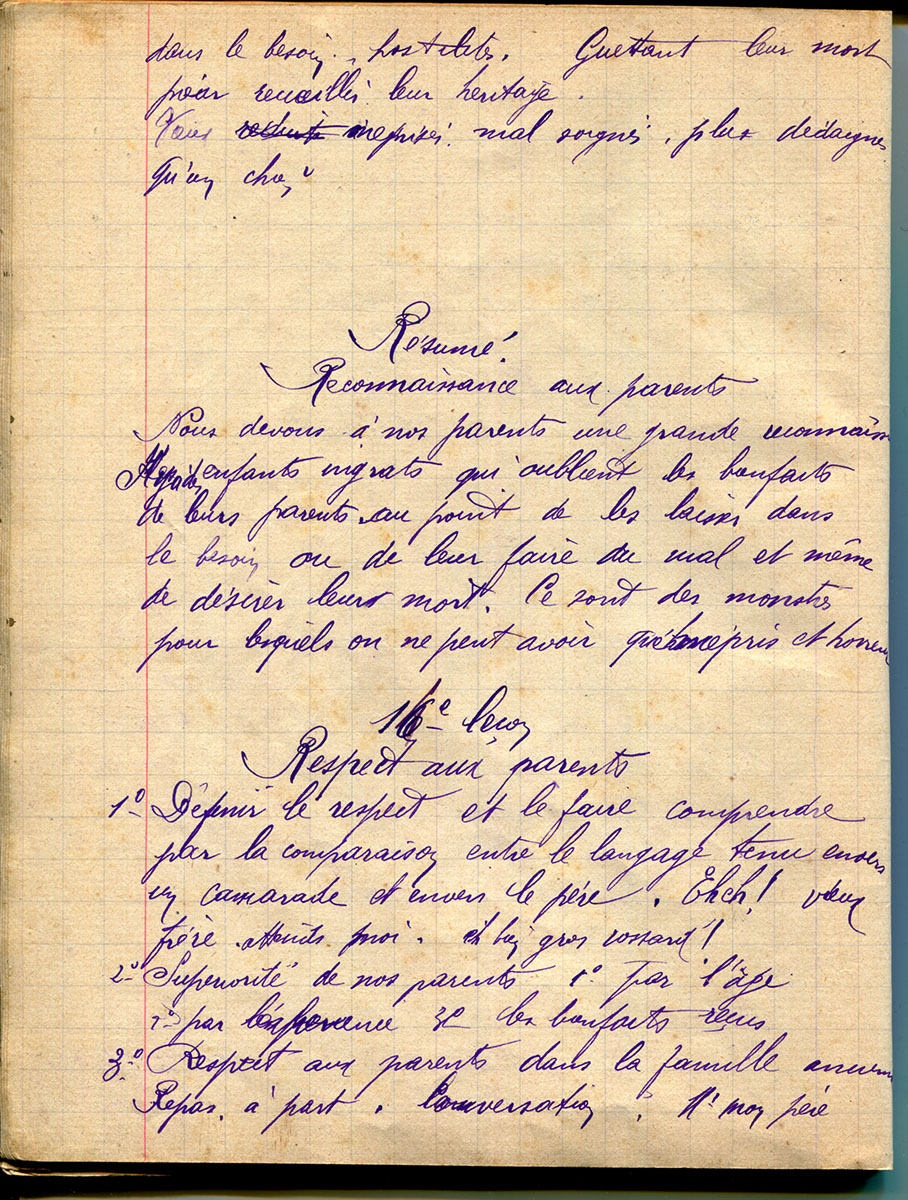 dans le besoin, hostilités. Guettant leur mort
pour recueillir leur héritage.
méprisés mal soignés, plus dédaignés
qu'un chien
Résumé.
Reconnaissance aux parents
Nous devons à nos parents une grande reconnaiss
Il y a des enfants ingrats qui oublient les bienfaits
de leurs parents au point de les laisser dans
le besoin ou de leur faire du mal et même
de désirer leur mort. Ce sont des monstres
pour lesquels on ne peut avoir que mépris et horreur
16e leçon
Respect aux parents
1º Définir le respect et le faire comprendre
par la comparaison entre le langage tenu envers
un camarade et envers le père. Eh eh! vieux
frère attends moi. eh bien gros rossard!
2º Supériorité de nos parents 1º par l'âge
2º par l'expérience 3º les bienfaits reçus
3º Respect aux parents dans la famille ancienne
Repas, à part. Conversation, Mr mon père